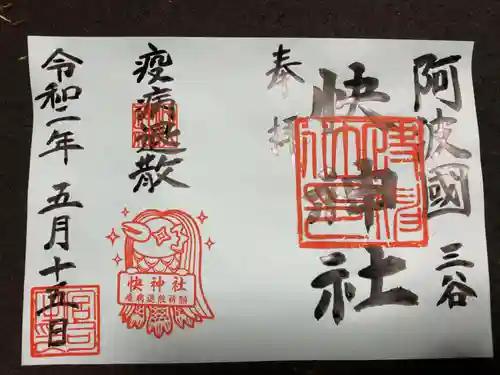 阿波國
三谷
快神社
奉拝
疫病退散
快神社
疫病退散祈願
令和二年 五月十五日